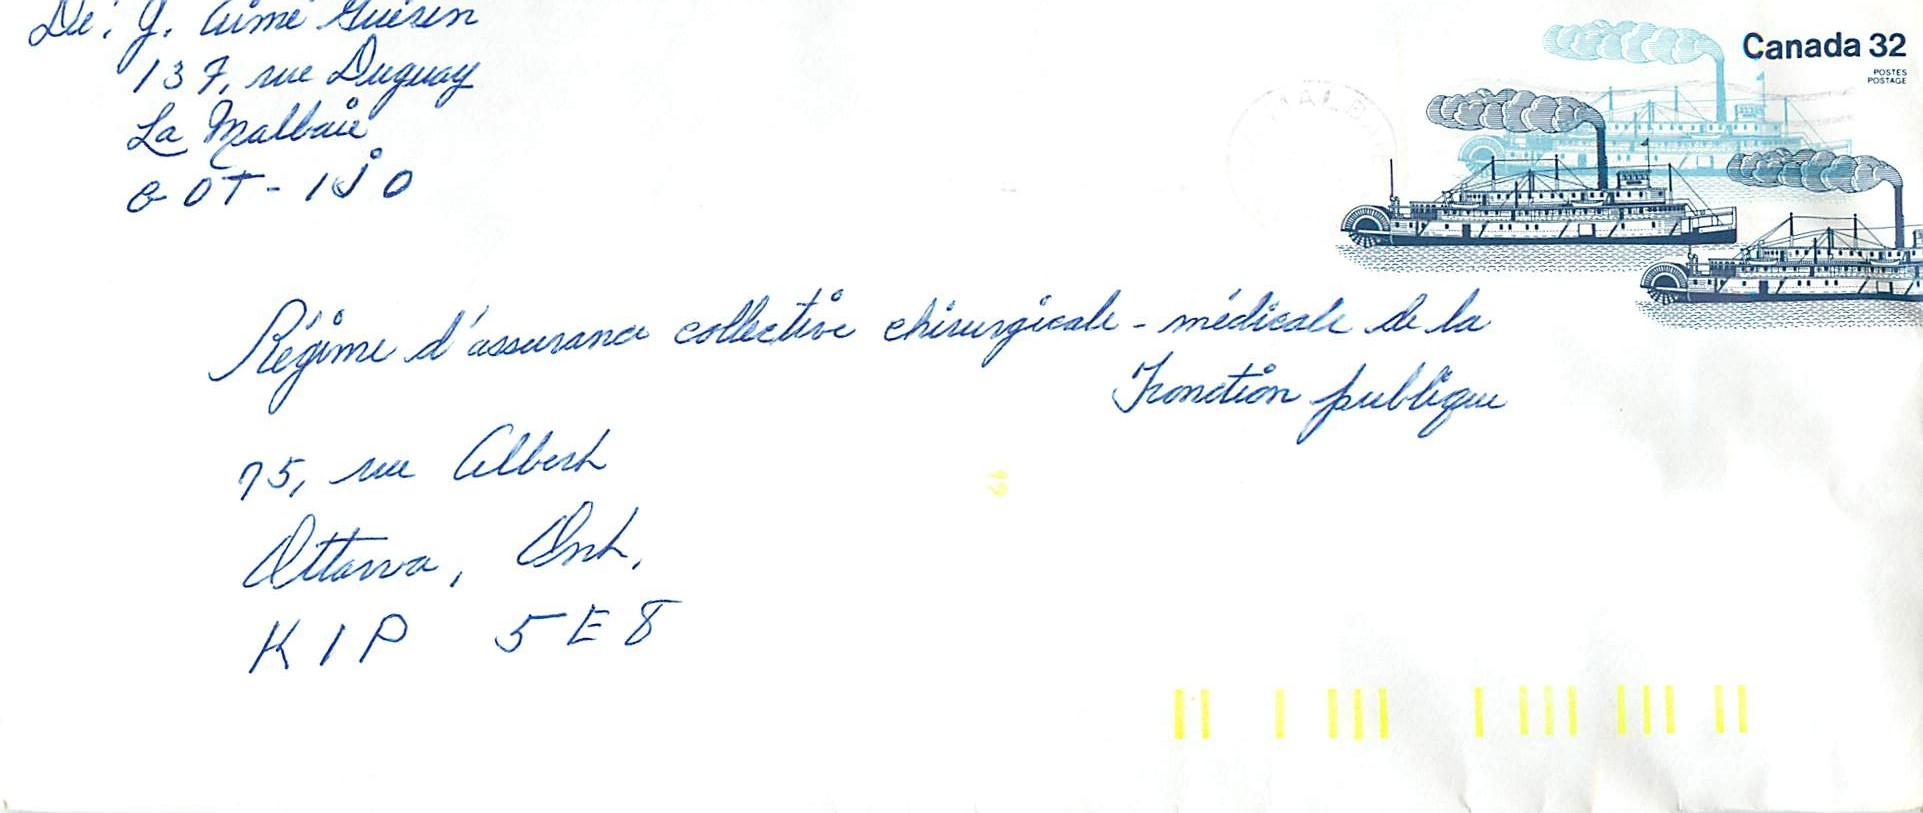 De: J. Aimé Guérin
137, rue Duguay
La Malbaie
G0T-1J0
Canada 32
POSTES
POSTAGE
MALBA
Régime d'assurance collective chirurgicale-médicale de la
Fonction publique
75, rue Albert
Ottawa, Ont.
K1P 5E8